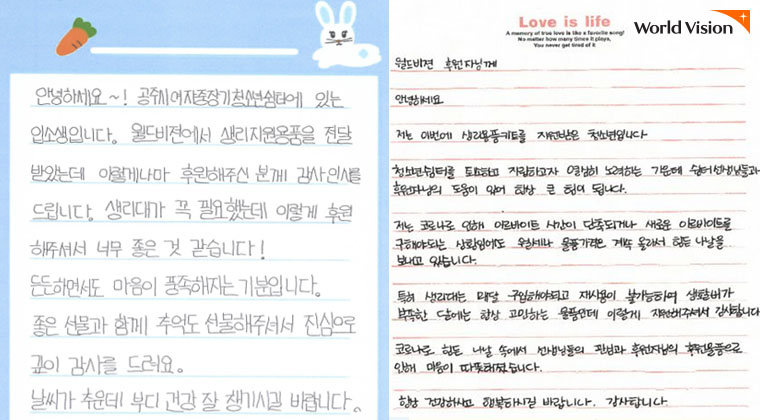 안녕하세요~! 공주시여자중장기청소년쉼터에 있는
입소생입니다. 월드비젼에서 생리지원용품을 전달
받았는데 이렇게나마 후원해주신 분께 감사인사를
드립니다. 생리대가 꼭 필요했는데 이렇게 후원
해주셔서 너무 좋은 것 같습니다!
든든하면서도 마음이 풍족해지는 기분입니다.
좋은 선물과 함께 추억도 선물해주셔서 진심으로
깊이 감사를 드려요.
날씨가 추운데 부디 건강 잘 챙기시길 바랍니다.
Love is life
A memory of true love is like a favorite song!
No matter how many times it plays,
You never get tired of it
World Vision
월드비젼 후원자님께
안녕하세요
저는 이번에 생리용품키트를 지원받은 청소년입니다
청소년쉼터를 퇴소하고 자립하고자 열심히 노력하는 가운데 쉼터선생님들과
후원자님의 도움이 있어 항상 큰 힘이 됩니다.
저는 코로나로 인해 아르바이트 시간이 단축되거나 새로운 아르바이트를
구해야되는 상황임에도 월세나 물품가격은 계속 올라서 힘든 나날을
보내고 있습니다.
특히 생리대는 매달 구입해야되고 재사용이 불가능하여 생활비가
부족한 달에는 항상 고민하는 물품인데 이렇게 지원해주셔서 감사합니다
코로나로 힘든 나날 속에서 선생님들의 관심과 후원자님의 후원물품으로
인해 마음이 따뜻해졌습니다.
항상 건강하시고 행복하시길 바랍니다. 감사합니다.